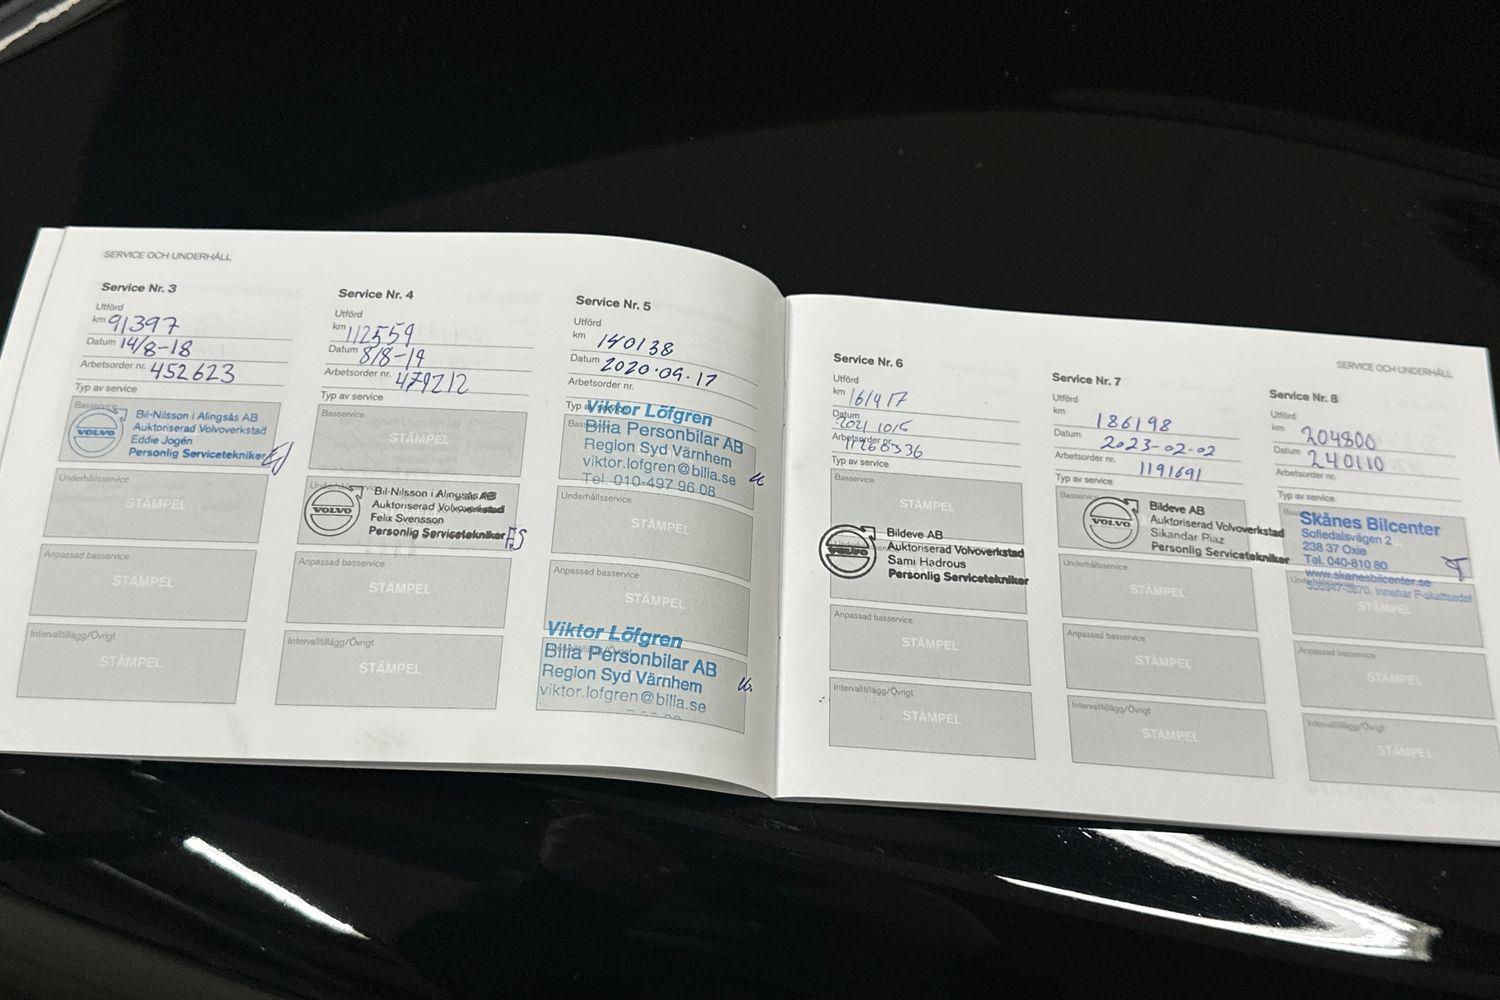 SERVICE OCH UNDERHÅLL
Service Nr. 3
Utförd
km 91397
Datum 14/8-18
Arbetsorder nr. 452623
Typ av service
Basservice
VOLVO
Bil-Nilsson i Alingsås AB
Auktoriserad Volvoverkstad
Eddie Jogén
Personlig Servicetekniker
Underhållsservice
STÄMPEL
Anpassad basservice
STÄMPEL
Intervalltillägg/Övrigt
STÄMPEL
Service Nr. 4
Utförd
km 112559
Datum 8/8-19
Arbetsorder nr. 479212
Typ av service
Basservice
STÄMPEL
VOLVO
Bil-Nilsson i Alingsås AB
Auktoriserad Volvoverkstad
Felix Svensson
Personlig Servicetekniker FS
Anpassad basservice
STÄMPEL
Intervalltillägg/Övrigt
STÄMPEL
Service Nr. 5
Utförd
km 140138
Datum 2020.09.17
Arbetsorder nr.
Viktor Löfgren
Bilia Personbilar AB
Region Syd Värnhem
viktor.lofgren@bilia.se
Tel. 010-497 96 08
Underhållsservice
STÄMPEL
Anpassad basservice
STÄMPEL
Viktor Löfgren
Bilia Personbilar AB
Region Syd Värnhem
viktor.lofgren@bilia.se
SERVICE OCH UNDERHÅLL
Service Nr. 6
Utförd
km 161917
Datum
2021 1015
Arbetsorder nr.
Typ av service
Basservice
STÄMPEL
VOLVO
Bildeve AB
Auktoriserad Volvoverkstad
Sami Hadrous
Personlig Servicetekniker
Anpassad basservice
STÄMPEL
Intervalltillägg/Övrigt
STÄMPEL
Service Nr. 7
Utförd
km 186198
Datum 2023-02-02
Arbetsorder nr. 1191691
Typ av service
Basservice
VOLVO
Bildeve AB
Auktoriserad Volvoverkstad
Sikandar Riaz
Personlig Servicetekniker
Underhållsservice
STÄMPEL
Anpassad basservice
STÄMPEL
Intervalltillägg/Övrigt
STÄMPEL
Service Nr. 8
Utförd
km 204800
Datum 240110
Arbetsorder nr.
Typ av service
Skånes Bilcenter
Sofiedalsvägen 2
238 37 Oxie
Tel. 040-810 80
www.skanesbilcenter.se
Innehar F-skattsedel
STÄMPEL
Anpassad basservice
STÄMPEL
Intervalltillägg/Övrigt
STÄMPEL